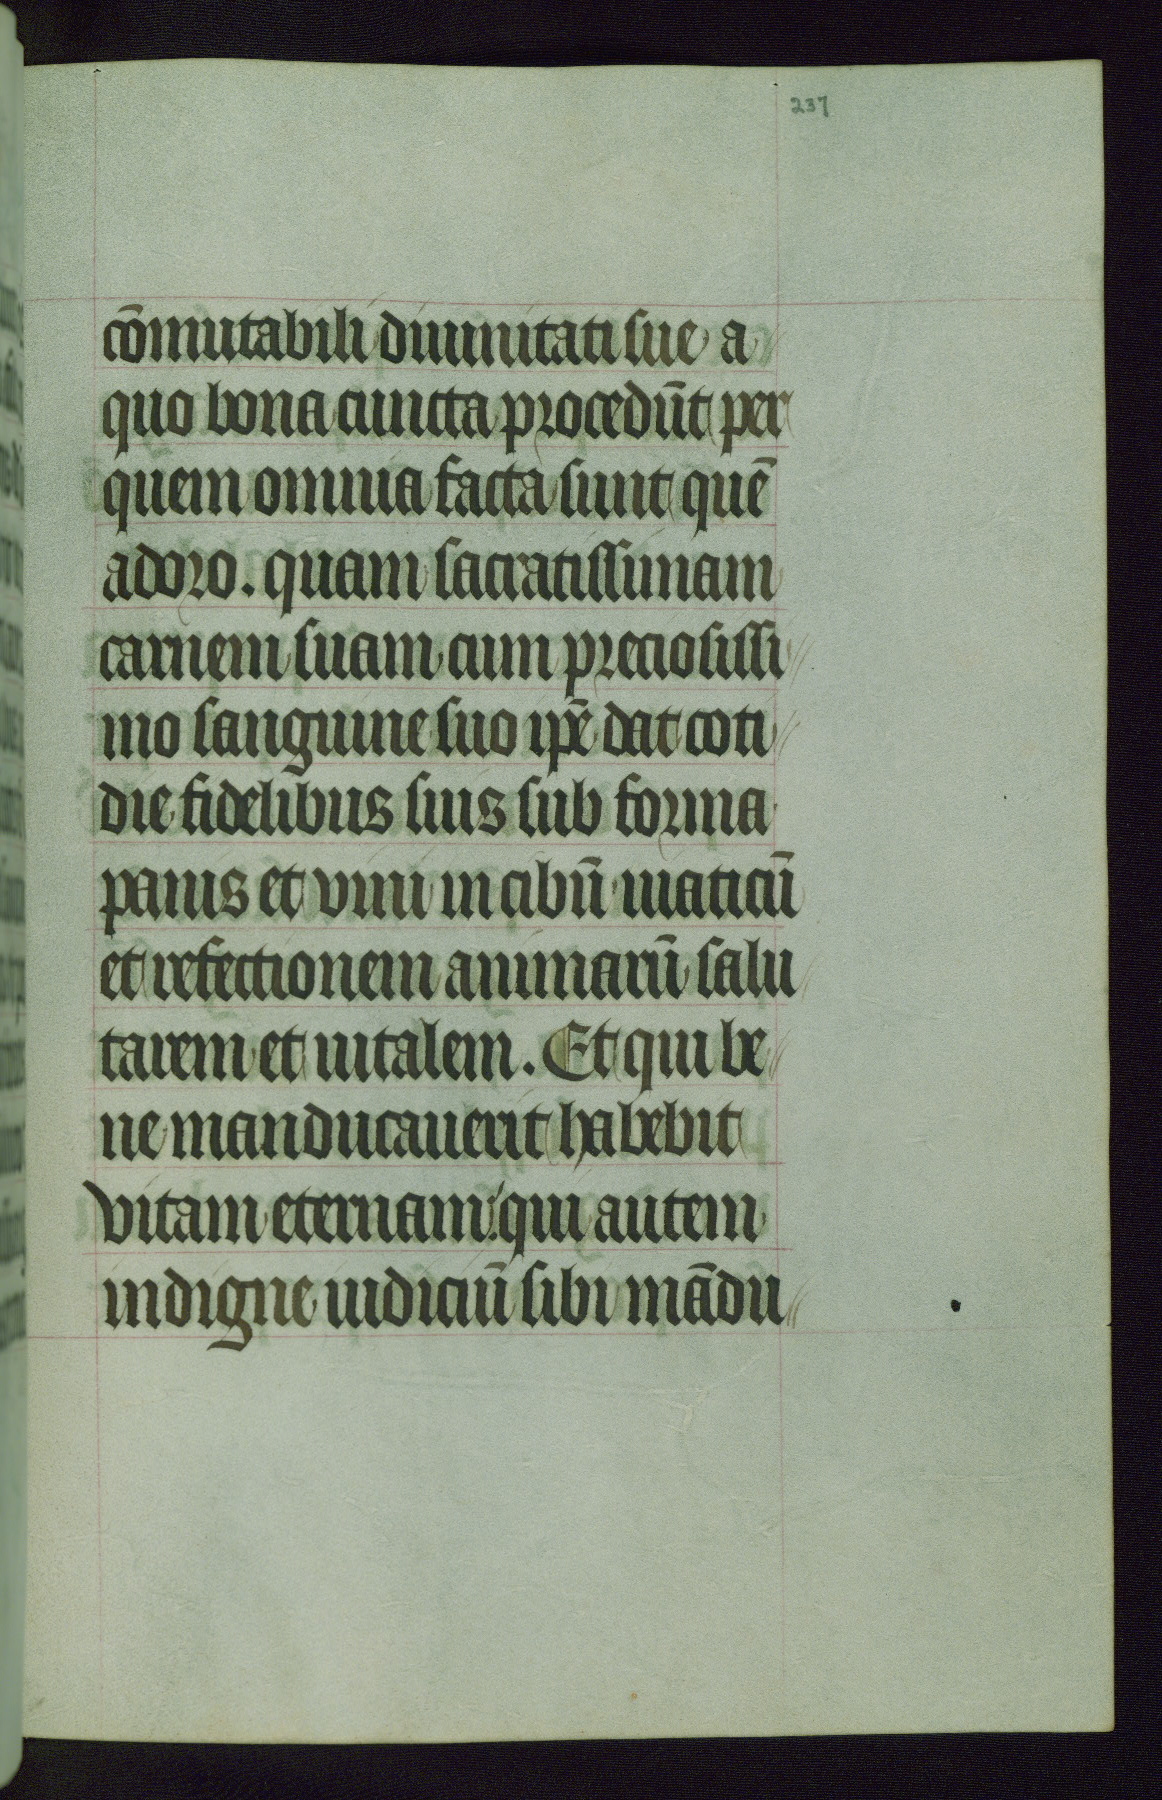 237
cōmutabili diuinitati sue a
quo bona cuncta procedūt per
quem omnia facta sunt quē
adoro. quam sacratissimam
carnem suam cum preciosissi
mo sanguine suo ip̄e dat coti
die fidelibus suis sub forma
panis et vini in cibū uiaticū
et refectionem animarū salu
tarem et uitalem. Et qui be
ne manducauerit habebit
vitam eternam: qui autem
indigne iudiciū sibi mādu